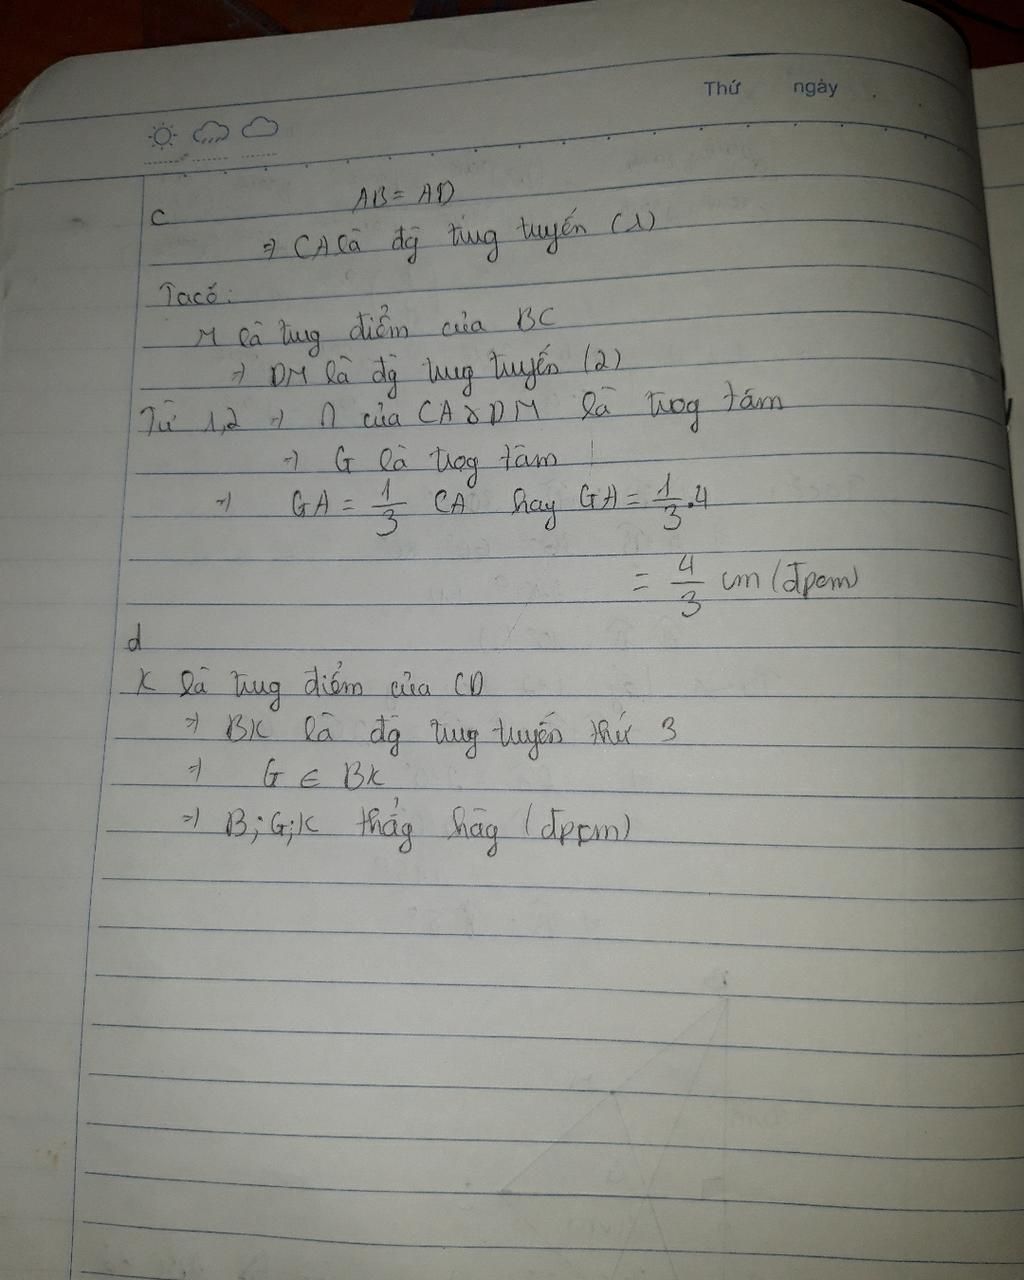 Thứ ngày
c AB = AD
=> CA là đg tủng tuyến (1)
Ta có:
M là tung điểm của BC
=> DM là đg tung tuyến (2)
Từ 1,2 => ∩ của CA & DM là trog tâm
=> G là trọg tâm
=> GA = 1/3 CA hay GA = 1/3 . 4
= 4/3 cm (đpcm)
d
K là tung điểm của CD
=> BK là đg tung tuyến thứ 3
=> G ∈ BK
=> B; G; K thẳg hàg (đpcm)